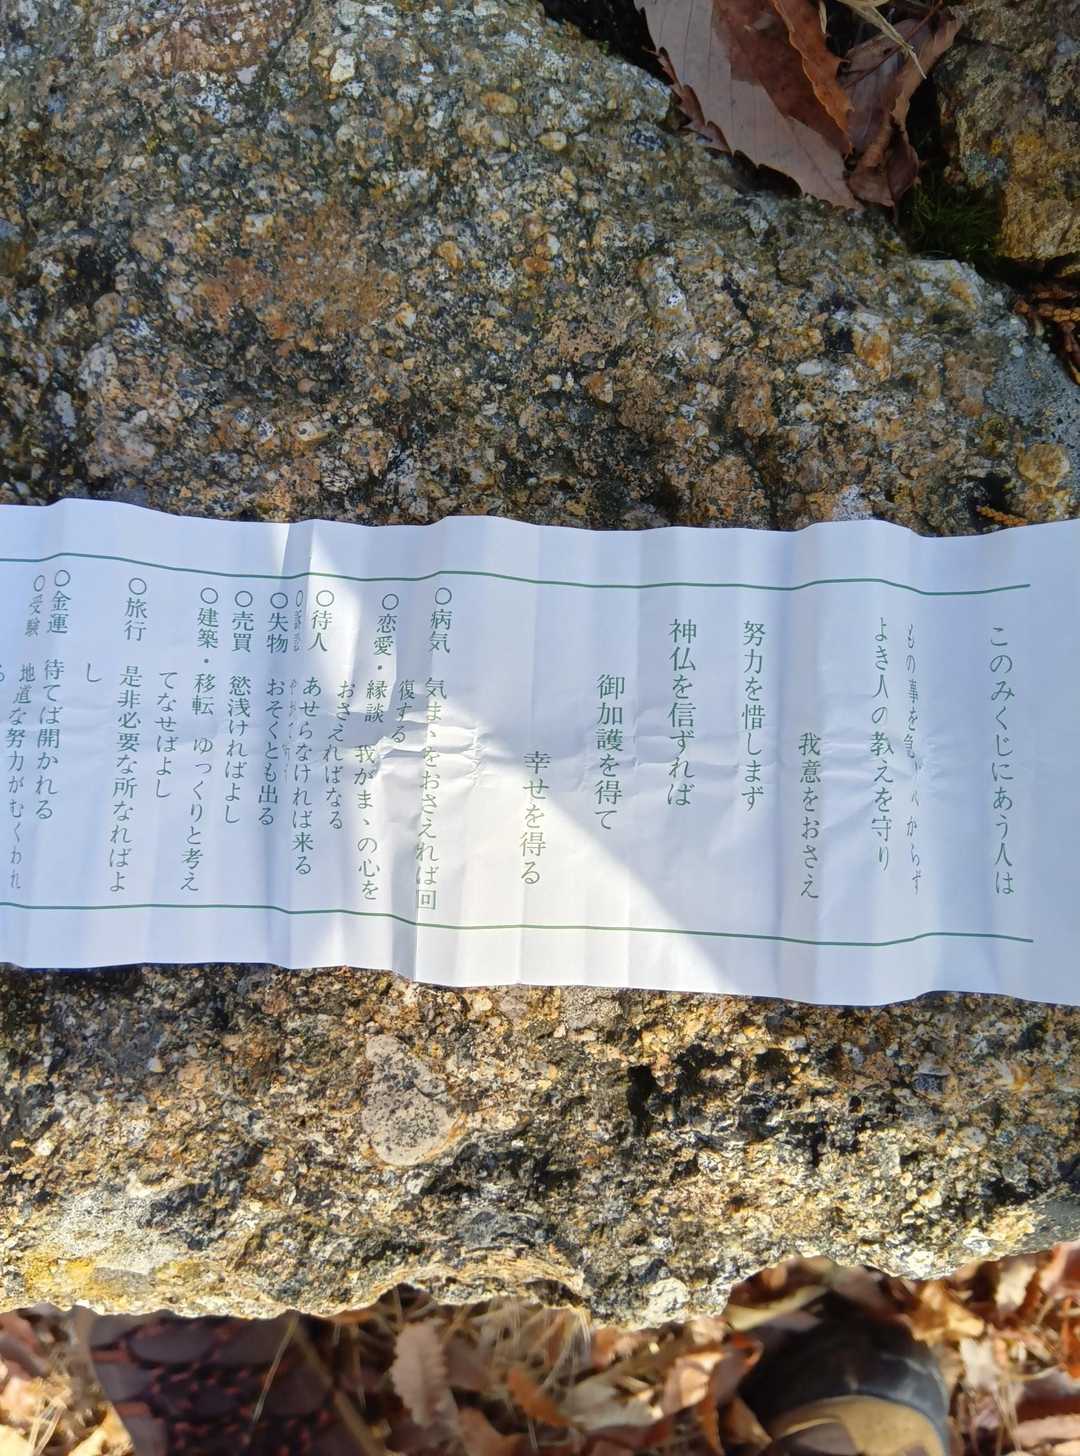 このみくじにあう人は
もの事を急ぐべからず
よき人の教えを守り
我意をおさえ
努力を惜しまず
神仏を信ずれば
御加護を得て
幸せを得る
○病気 気まゝをおさえれば回
復する
○恋愛・縁談 我がまゝの心を
おさえればなる
○待人 あせらなければ来る
○失物 おそくとも出る
○売買 慾浅ければよし
○建築・移転 ゆっくりと考え
てなせばよし
○旅行 是非必要な所なればよ
し
○金運 待てば開かれる
○受験 地道な努力がむくわれ
る